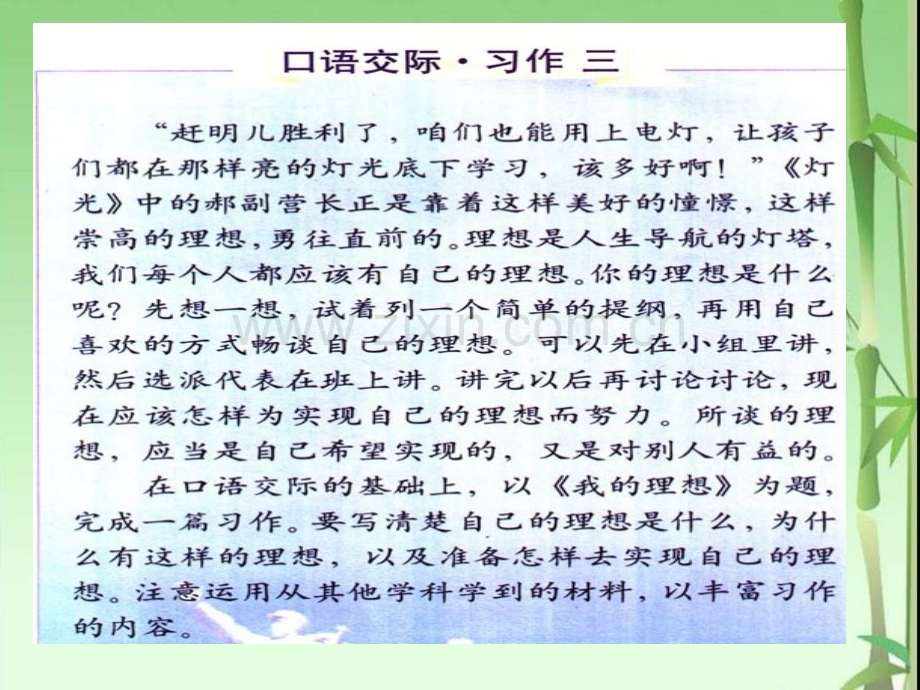 口语交际·习作 三
“赶明儿胜利了，咱们也能用上电灯，让孩子
们都在那样亮的灯光底下学习，该多好啊！”《灯
光》中的郝副营长正是靠着这样美好的憧憬，这样
崇高的理想，勇往直前的。理想是人生导航的灯塔，
我们每个人都应该有自己的理想。你的理想是什么
呢？先想一想，试着列一个简单的提纲，再用自己
喜欢的方式畅谈自己的理想。可以先在小组里讲，
然后选派代表在班上讲。讲完以后再讨论讨论，现
在应该怎样为实现自己的理想而努力。所谈的理
想，应当是自己希望实现的，又是对别人有益的。
在口语交际的基础上，以《我的理想》为题，
完成一篇习作。要写清楚自己的理想是什么，为什
么有这样的理想，以及准备怎样去实现自己的理
想。注意运用从其他学科学到的材料，以丰富习作
的内容。
www.zixin.com.cn